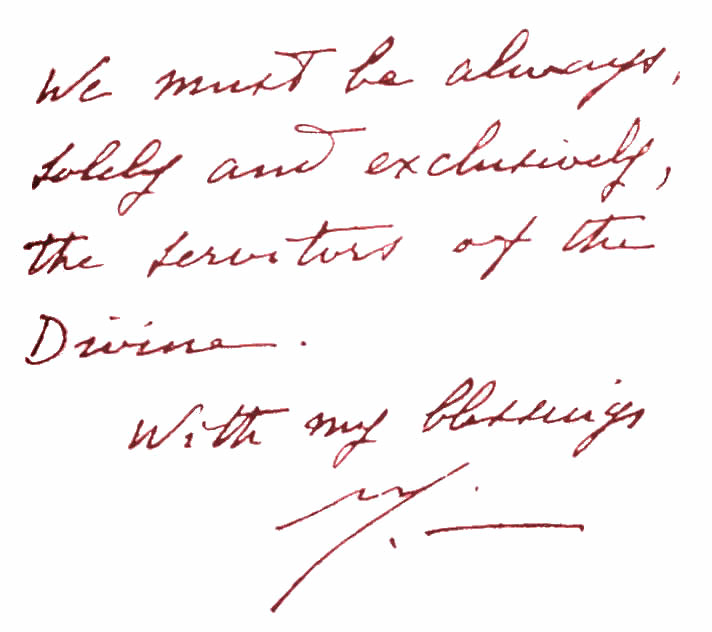 We must be always,
solely and exclusively,
the servitors of the
Divine.
With my blessings